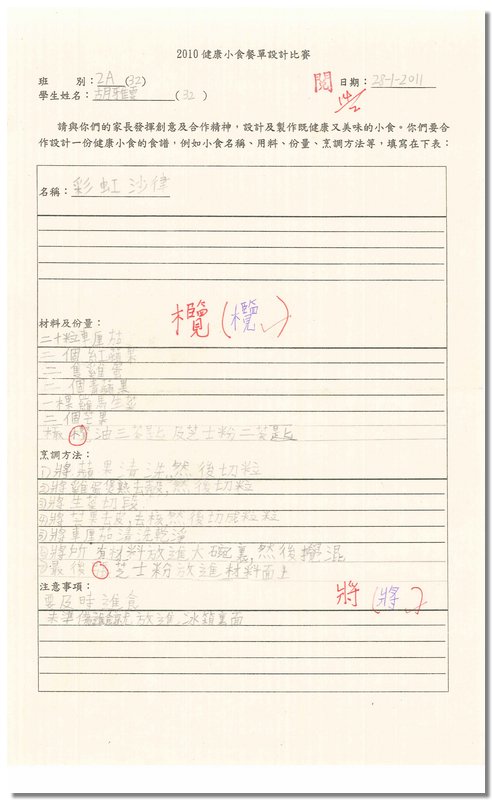 2010 健康小食餐單設計比賽
班　　別：2A (32)　閱　日期：28-1-2011
學生姓名：胡雅雯 (32)　14/2
請與你們的家長發揮創意及合作精神，設計及製作既健康又美味的小食。你們要合
作設計一份健康小食的食譜，例如小食名稱、用料、份量、烹調方法等，填寫在下表：
名稱：彩虹沙律
欖(欖✓)
材料及份量：
二十粒車厘茄
二個紅蘋果
二隻雞蛋
二個青蘋果
一棵羅馬生菜
二個芒果
橄欖油三茶匙及芝士粉二茶匙
烹調方法：
①將蘋果清洗,然後切粒
②將雞蛋煲熟去殼,然後切粒
③將生菜切段
④將芒果去皮,去核,然後切成粒粒
⑤將車厘茄清洗乾淨
⑥將所有材料放進大碗裏,然後攪混
⑦最後 芝士粉放進材料面上
注意事項：
將(將✓)
要及時進食
放進冰箱裏面